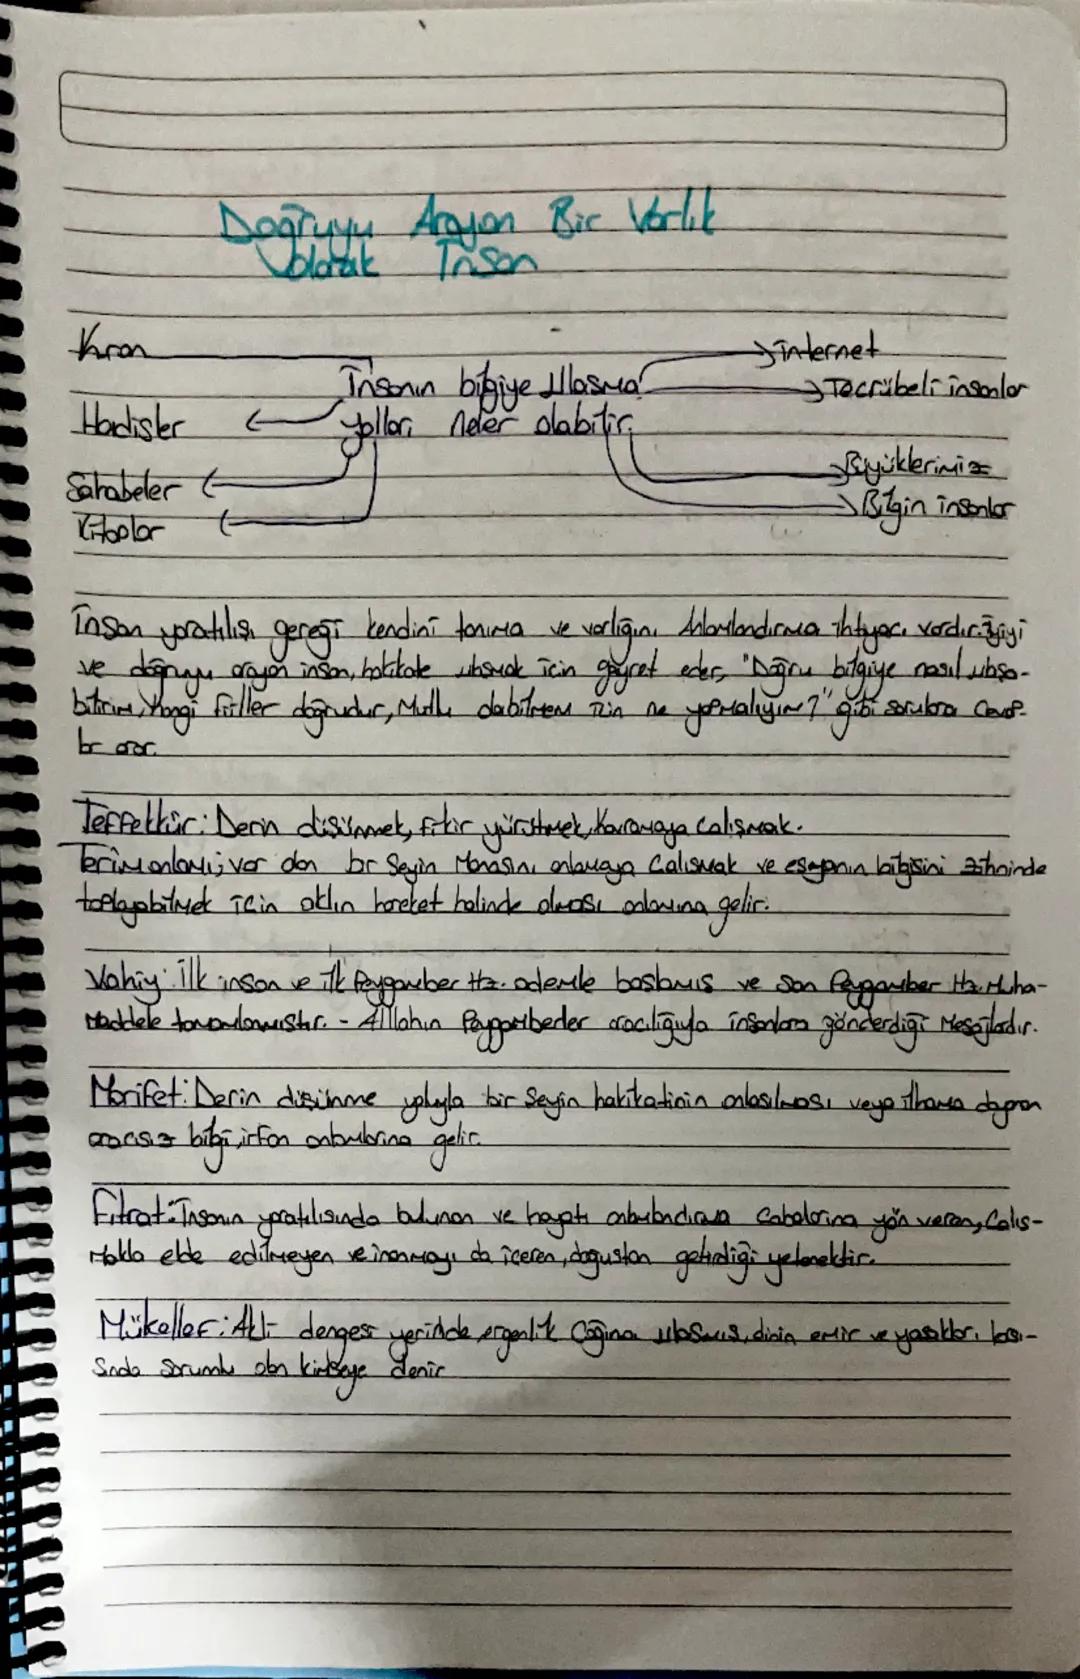 Doğruyu Arayan Bir Varlık
olarak İnsan
Kuran
İnternet
İnsanın bilgiye Ulaşma
Tecrübeli insanlar
Hadisler
yolları neler olabilir.
Büyüklerimiz
Sahabeler
Bilgin insanlar
Kitaplar
İnsan yaratılışı gereği kendini tanıma ve varlığını Anlamlandırma ihtiyacı vardır. İyiyi
ve doğruyu arayan insan, hakikate ulaşmak için gayret eder, "Doğru bilgiye nasıl ulaşa-
bilirim, Hangi fiiller doğrudur, Mutlu olabilmem için ne yapmalıyım?" gibi sorulara Cevap-
lar arar.
Teffekkür: Derin düşünmek, fikir yürütmek, Kavramaya Çalışmak.
Terim anlamı; var olan bir Şeyin Manasını anlamaya Çalışmak ve eşyanın bilgisini zihninde
toplayabilmek için aklın hareket halinde olması anlamına gelir.
Vahiy: İlk insan ve ilk Peygamber Hz. ademle başlamış ve son Peygamber Hz. Muha-
mmedle tamamlanmıştır. - Alllahın Peygamberler aracılığıyla insanlara gönderdiği Mesajladır.
Marifet: Derin düşünme yoluyla bir Şeyin hakikatinin anlaşılması veya ilhama dayanan
aracısız bilgi, irfan anlamlarına gelir.
Fıtrat: İnsanın yaratılışında bulunan ve hayatı anlamlandırma Çabalarına yön veren, Çalış-
makla elde edilmeyen ve inanmayı da içeren, doğuştan getirdiği yetenektir.
Mükellef: Akli dengesi yerinde, ergenlik Çağına ulaşmış, dinin emir ve yasakları karşı-
sında sorumlu olan kimseye denir